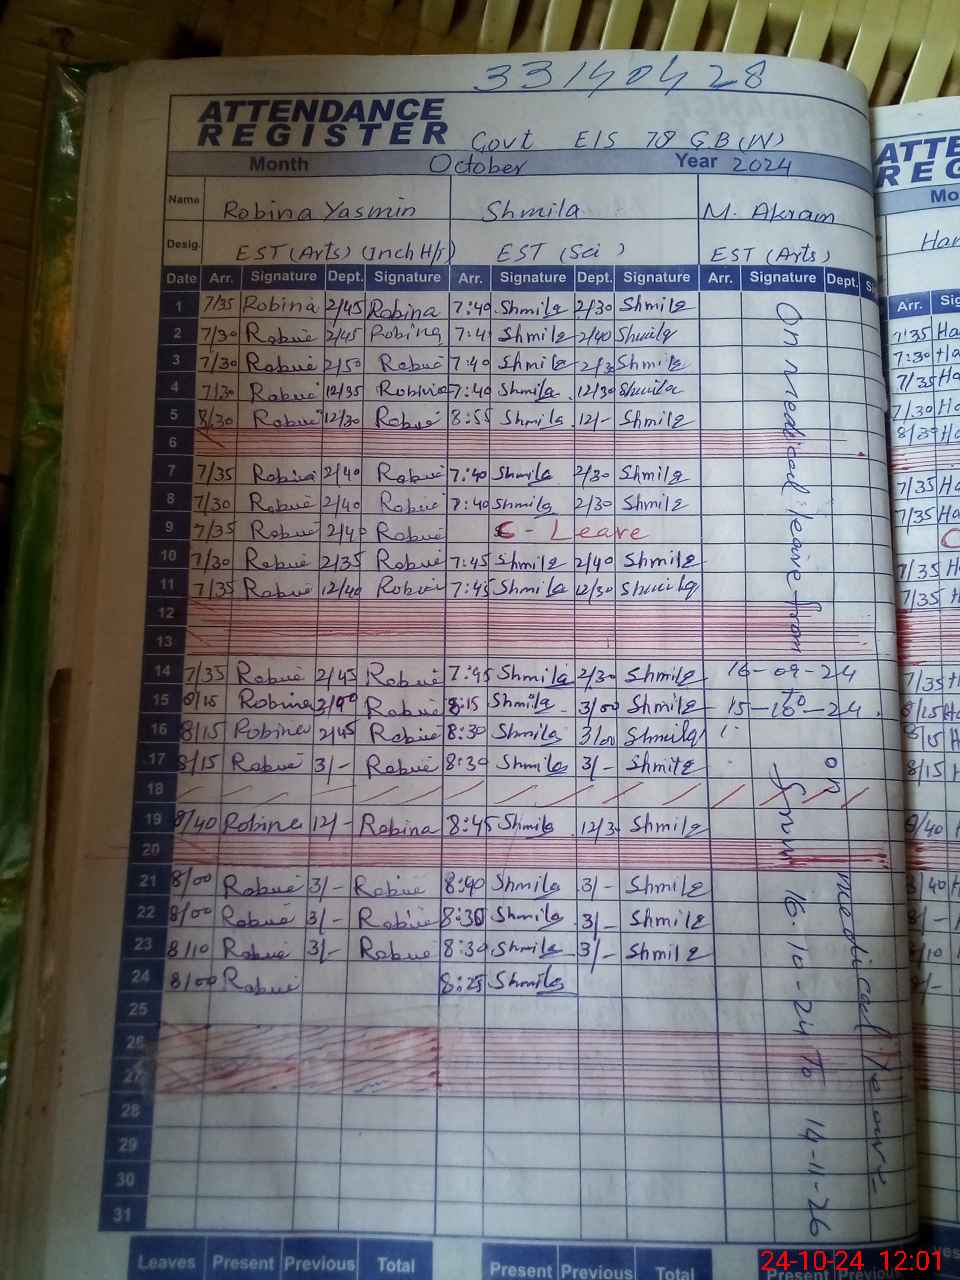 33140428
ATTENDANCE
REGISTER Govt E/S 78 G.B (W)
Month October Year 2024
Name Robina Yasmin Shmila M. Akram
Desig. EST (Arts) (Inch H/s) EST (Sci) EST (Arts)
Date Arr. Signature Dept. Signature Arr. Signature Dept. Signature Arr. Signature Dept.
1 7/35 Robina 2/45 Robina 7:40 Shmila 2/30 Shmila
2 7/30 Robina 2/45 Robina Shmila 2/40 Shmila
3 7/30 Robina 2/50 Robina 7:40 Shmila Shmila
4 7/30 Robina 12/35 Robina 7:40 Shmila 12/30 Shmila
5 8/30 Robina 12/30 Robina 8:55 Shmila 12/- Shmila
6
7 7/35 Robina 2/40 Robina 7:40 Shmila 2/30 Shmila
8 7/30 Robina 2/40 Robina 7:40 Shmila 2/30 Shmila
9 7/35 Robina 2/40 Robina C - Leave
10 7/30 Robina 2/35 Robina 7:45 Shmila 2/40 Shmila
11 7/35 Robina 12/40 Robina 7:45 Shmila 12/30 Shmila
12
13
14 7/35 Robina 2/45 Robina 7:45 Shmila 2/30 Shmila 16-09-24
15 8/15 Robina Robina 8:15 Shmila 3/00 Shmila 15-10-24
16 8/15 Robina 2/45 Robina 8:30 Shmila 3/00 Shmila
17 8/15 Robina 3/- Robina 8:30 Shmila 3/- Shmila
18
19 8/40 Robina 12/- Robina 8:45 Shmila Shmila
20
21 8/00 Robina 3/- Robina 8:40 Shmila 3/- Shmila
22 8/00 Robina 3/- Robina 8:30 Shmila 3/- Shmila
23 8/10 Robina 3/- Robina 8:30 Shmila 3/- Shmila
24 8/00 Robina 8:25 Shmila
25
26
27
28
29
30
31
On medical leave from
to
on medical leave
from 16-10-24 To 14-11-26
Leaves Present Previous Total Present Previous Total Present Previous
ATTE
REG
Mo
Arr.
7:35
7:30
7/35
7/30
7/35
7/35
7/35
7/35
24-10-24 12:01